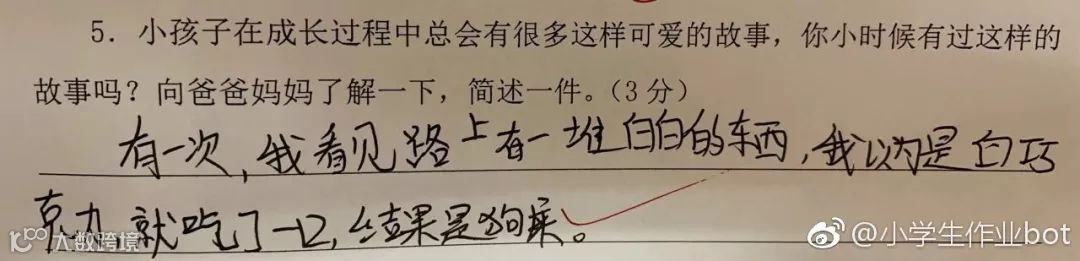 5. 小孩子在成长过程中总会有很多这样可爱的故事，你小时候有过这样的
故事吗？向爸爸妈妈了解一下，简述一件。（3分）
有一次，我看见路上有一堆白白的东西，我以为是白巧
克力就吃了一口，结果是狗屎。
大数跨境
@小学生作业bot